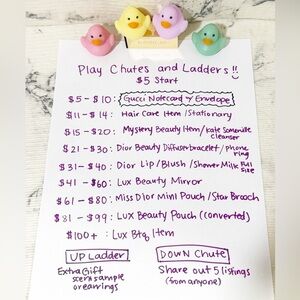 Play Chutes and Ladders!!
$5 Start
$5 - $10: Gucci Notecard & Envelope
$11 - $14: Hair Care Item /Stationary
$15 - $20: Mystery Beauty Item/Kate Somerville cleanser
$21 - $30: Dior Beauty Diffuser bracelet/ phone ring
$31 - $40: Dior Lip/Blush/Shower Milk Full Size
$41 - $60: Lux Beauty Mirror
$61 - $80: Miss Dior Mini Pouch/Star Brooch
$81 - $99: Lux Beauty Pouch ((converted)
$100+: Lux Btq Item
UP Ladder
Extra Gift
sample
or earrings
Down Chute
Share out 5 listings
(from anyone)